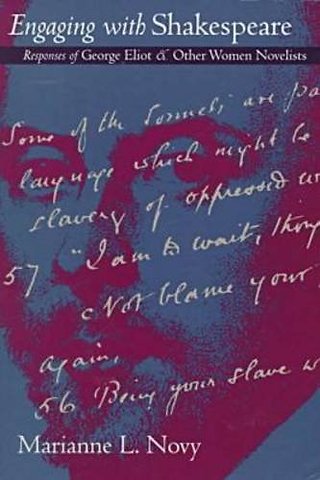 Engaging with Shakespeare
Responses of George Eliot & Other Women Novelists
Some of the Sonnets are pa
language which might be
slavery of oppressed w
57 "I am to wait, thoug
Not blame your
again,
56 'Being your slave w
Marianne L. Novy